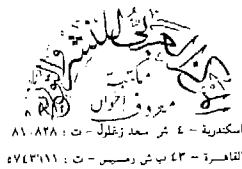 العربي للنشر
والتوزيع
مكتبة
معروف اخوان
اسكندرية - ٤ ش سعد زغلول - ت : ٨١٠٨٢٨
القاهرة - ٤٣ ب ش رمسيس - ت : ٥٧٤٣٦١١